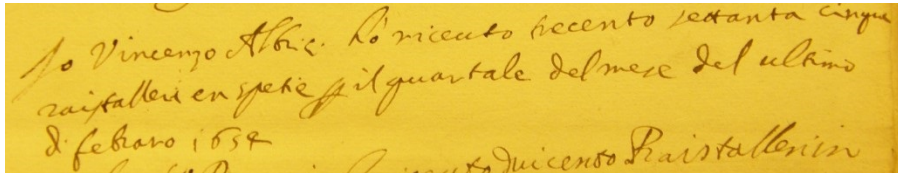 Io Vincenzo Albrici hò riceuto trecento settanta cinque
raistalleri en spetie p il quartale del mese del ultimo
di febraro 1654
riceuto duicento Raistalleri in